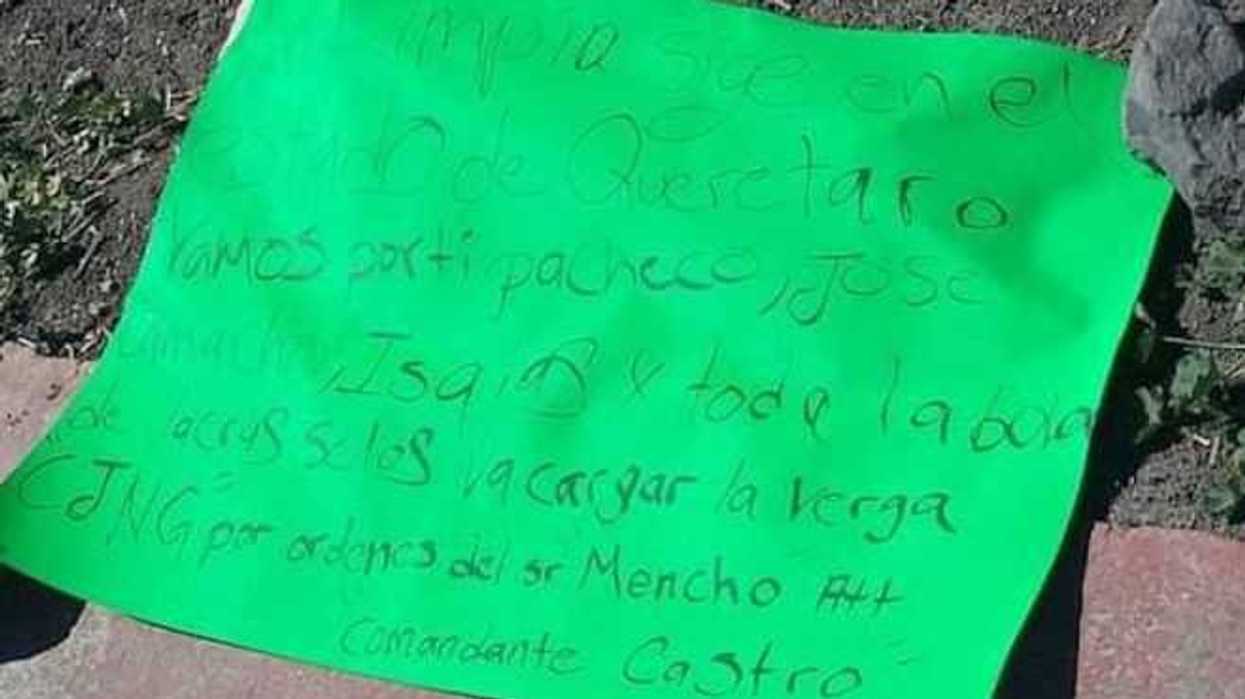 impia sige en el
estado de Queretaro
Vamos por ti pacheco, Jose
camacho, Isaias y toda la bola
de lacras se los va cargar la verga
CJNG por ordenes del sr Mencho Att
comandante Castro